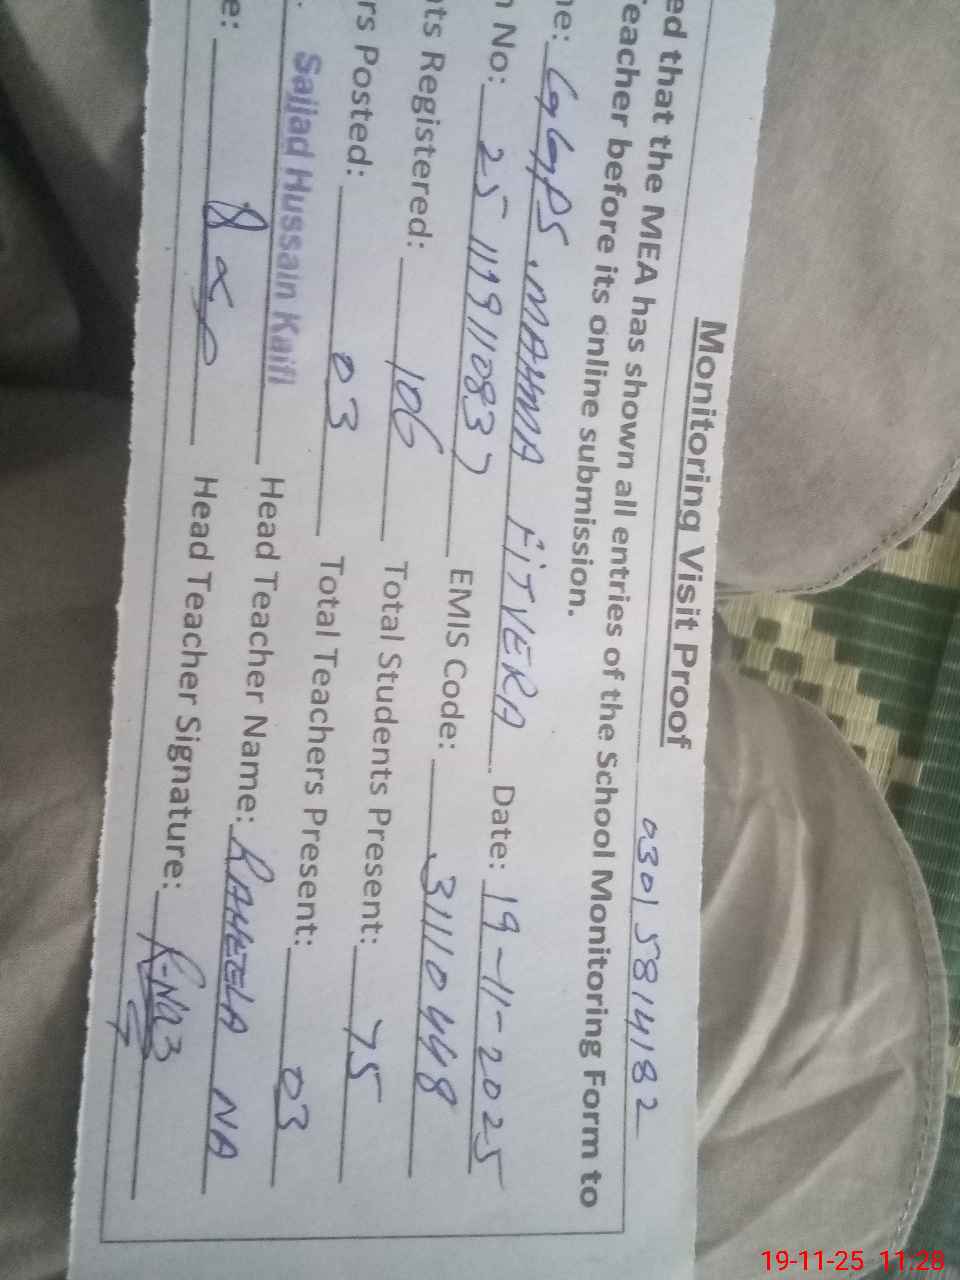 Monitoring Visit Proof
0301 5814182
ed that the MEA has shown all entries of the School Monitoring Form to
Teacher before its online submission.
ne: GGPS MAHNIA Date: 19-11-2025
n No: EMIS Code: 31110448
nts Registered: 106 Total Students Present: 75
rs Posted: 03 Total Teachers Present: 03
Sajjad Hussain Kaifi Head Teacher Name: RAHEELA NA
e: Head Teacher Signature:
19-11-25 11:28